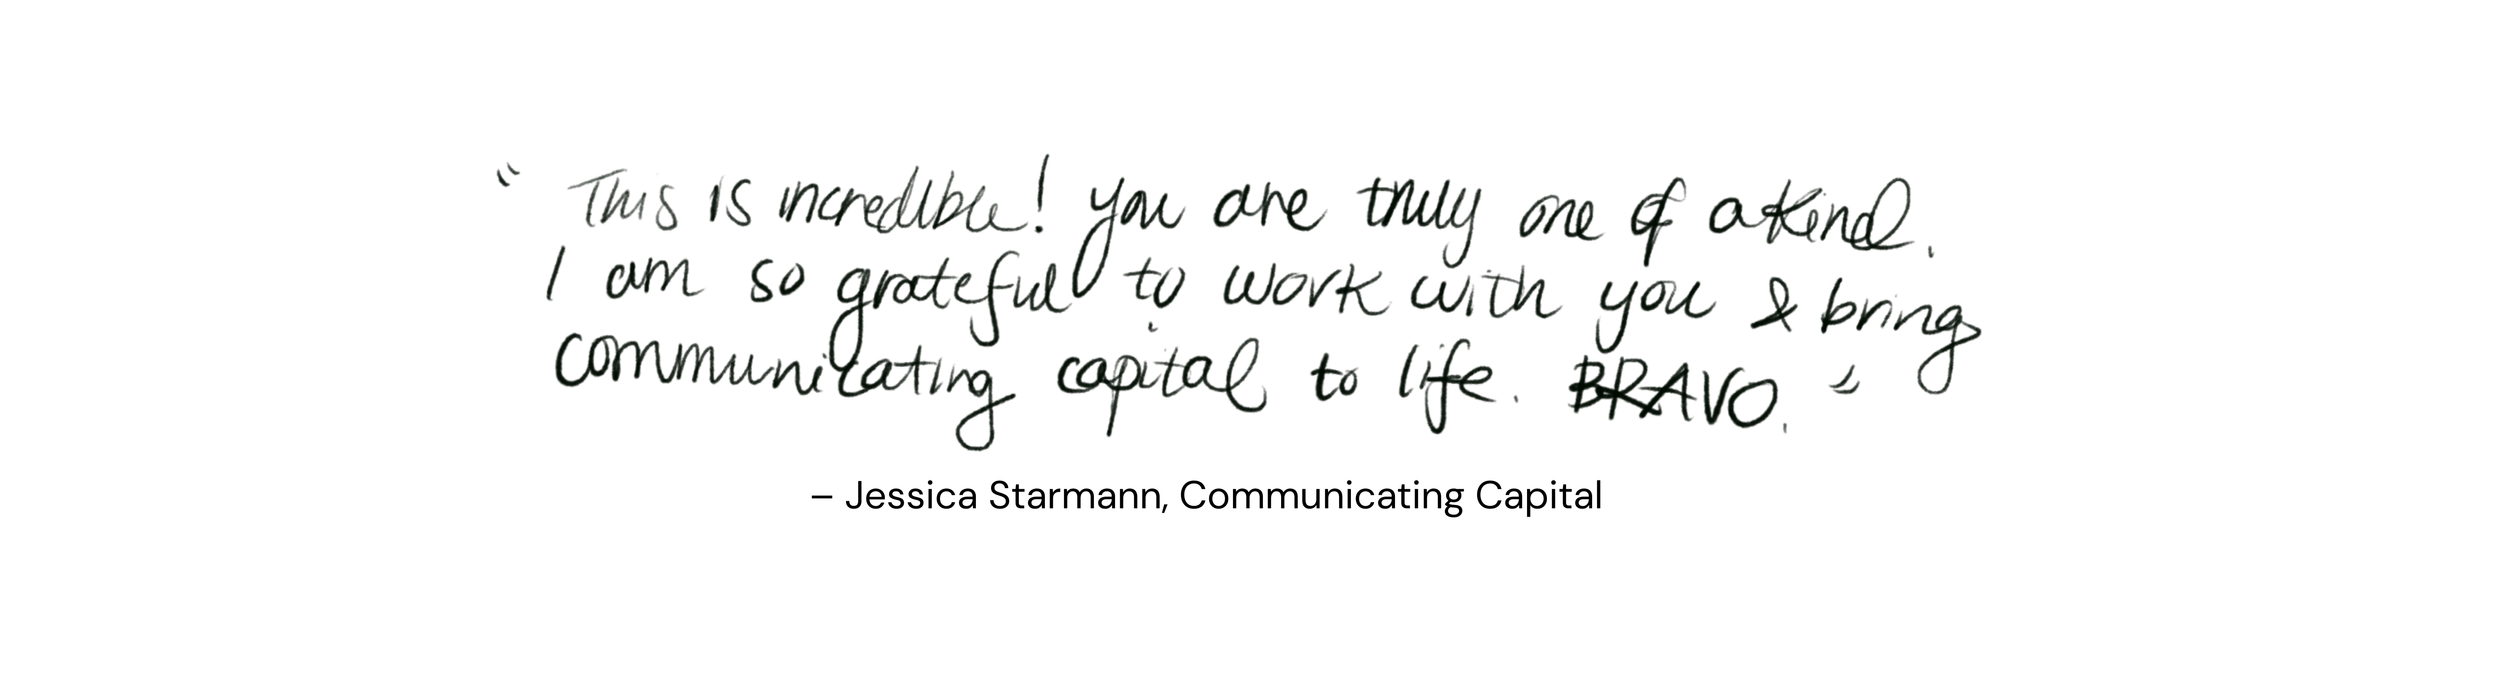 " This is incredible! you are truly one of a kind.
I am so grateful to work with you & bring
communicating capital to life. BRAVO. "
– Jessica Starmann, Communicating Capital